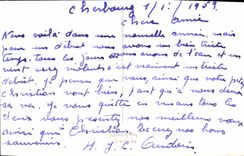 Cherbourg 1/1/1959
Chers amis
Nous voilà dans une nouvelle année, mais
pour un début nous avons un bien triste
temps. tous les jours nous avons de l'eau et un
vent assez violent c'est vraiment un triste
début. Je pense que vous, ainsi que votre petit
Christian vont bien, quant qu'à nous deux
sa va. Je vous quitte en vous tous les
deux vous présentez nos meilleurs voeux
ainsi qu'à Christian. Recevez nos bons
souvenirs. H. J. C.